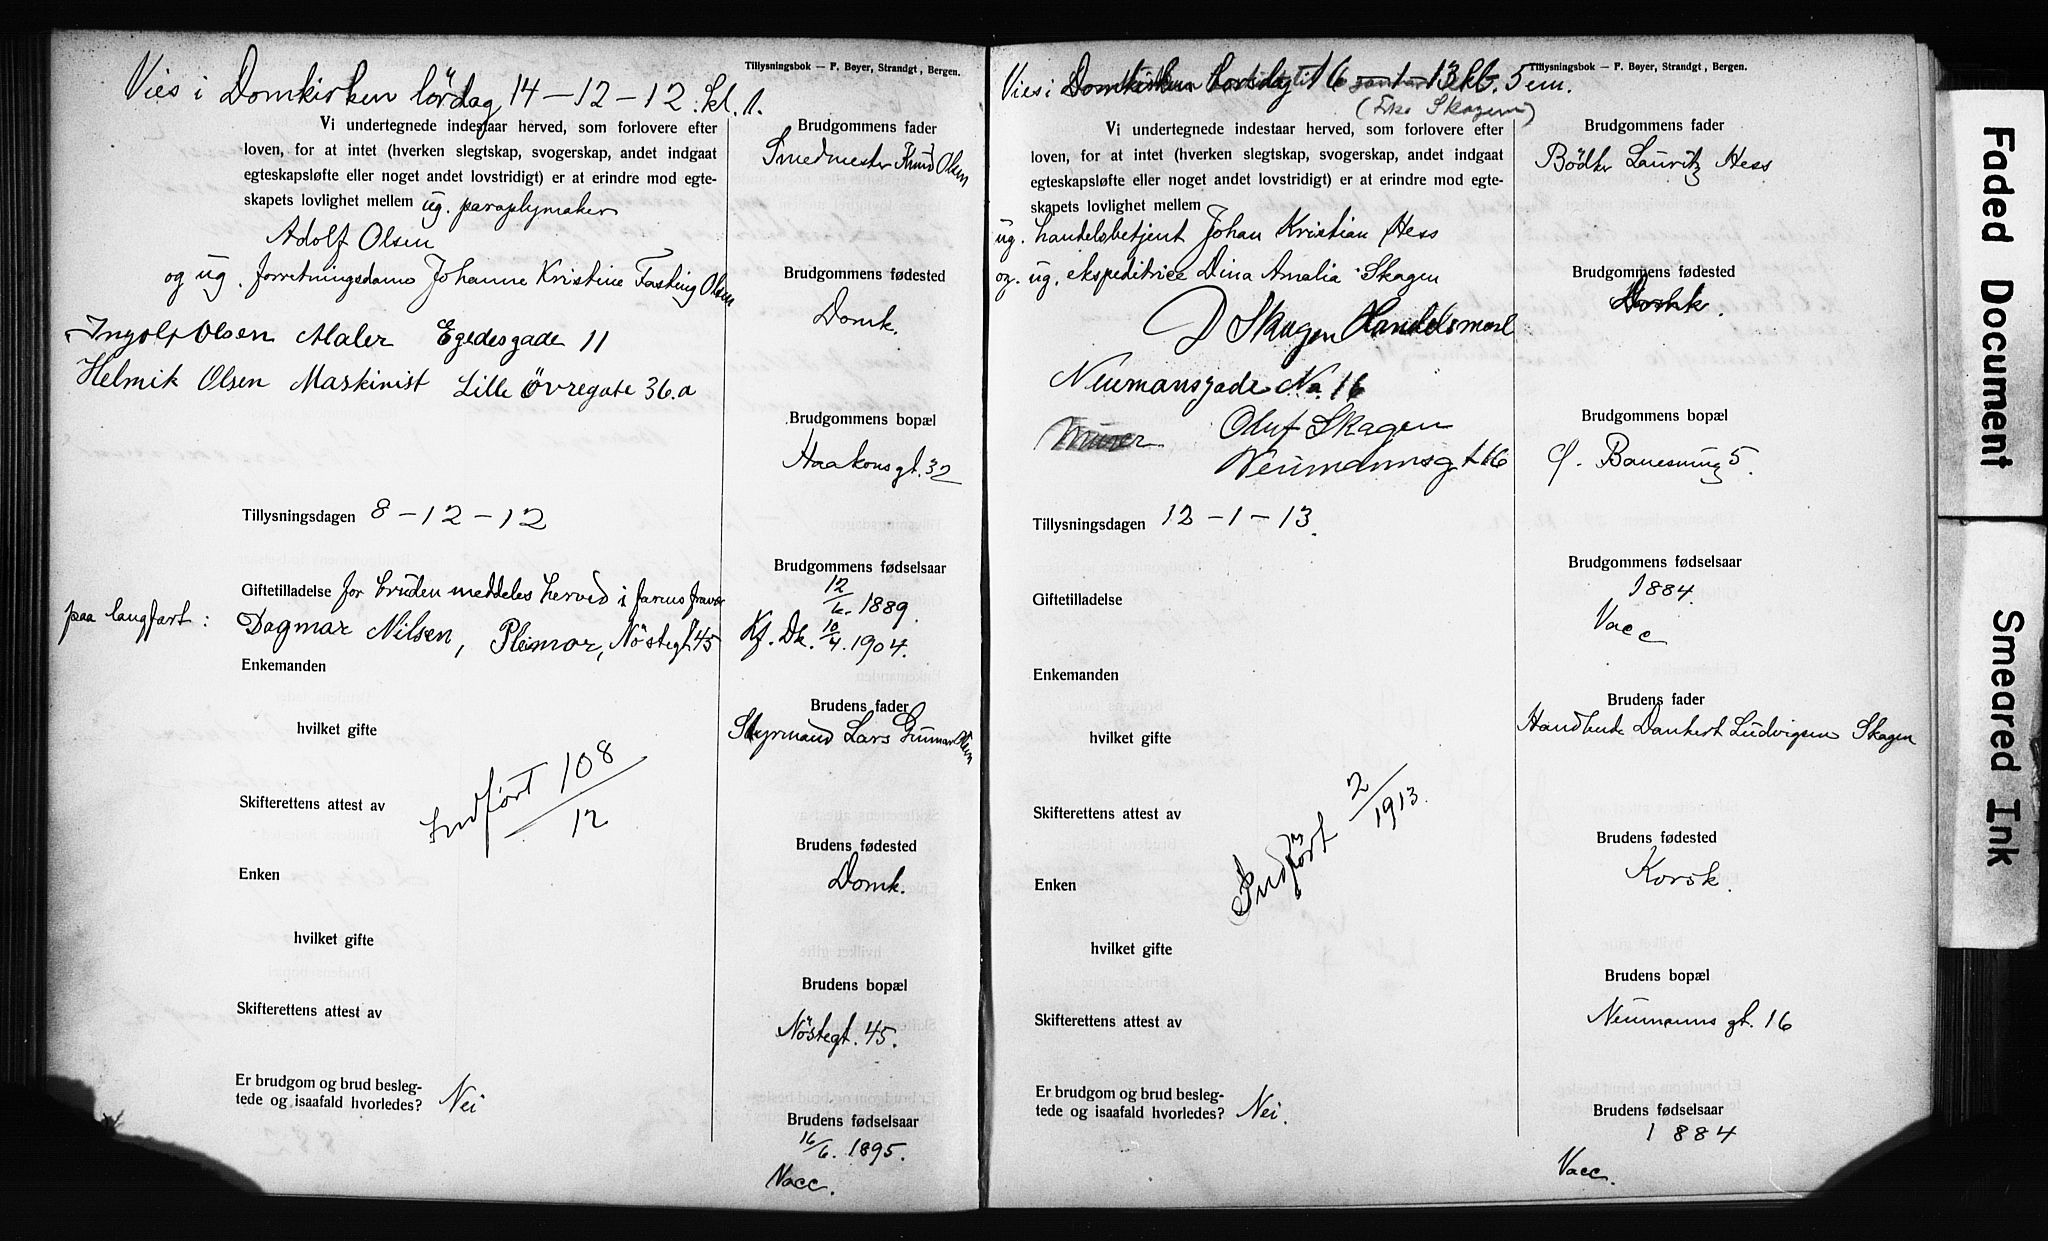 Tillysningsbok — F. Beyer, Strandgt, Bergen.
Vies i Domkirken lördag 14-12-12. kl. 1.
Vi undertegnede indestaar herved, som forlovere efter
loven, for at intet (hverken slegtskap, svogerskap, andet indgaat
egteskapsløfte eller noget andet lovstridigt) er at erindre mod egte-
skapets lovlighet mellem ug. paraplymaker
Adolf Olsen
og ug. forretningsdame Johanne Kristine Fasting Olsen
Ingolf Olsen Maler Egedesgade 11
Helmik Olsen Maskinist Lille Övregate 36.a
Tillysningsdagen 8-12-12
Giftetilladelse for bruden meddeles herved i farens fravær
paa langfart:
Dagmar Nilsen, Pleimor, Nöstegt 45
Enkemanden
hvilket gifte
Indført 108/12
Skifterettens attest av
Enken
hvilket gifte
Skifterettens attest av
Er brudgom og brud besleg-
tede og isaafald hvorledes? Nei
Brudgommens fader
Smedmester Knud Olsen
Brudgommens fødested
Domk.
Brudgommens bopæl
Haakonsgt. 32
Brudgommens fødselsaar
12/6. 1889.
Kf. Dk. 10/4. 1904.
Brudens fader
Styrmand Lars Gunnar Olsen
Brudens fødested
Domk.
Brudens bopæl
Nöstegt. 45.
Brudens fødselsaar
16/6. 1895.
Vacc.
Tillysningsbok — F. Beyer, Strandgt., Bergen.
Vies i Domkirken 16 1-13 kl. 5 em.
Skagen)
Vi undertegnede indestaar herved, som forlovere efter
loven, for at intet (hverken slegtskap, svogerskap, andet indgaat
egteskapsløfte eller noget andet lovstridigt) er at erindre mod egte-
skapets lovlighet mellem
ug. handelsbetjent Johan Kristian Hess
og. ug. ekspeditrice Dina Amalia Skagen
D Skagen
Neumansgade No. 16
Murer Oluf Skagen
Neumannsgt 16
Tillysningsdagen 12-1-13.
Giftetilladelse
Enkemanden
hvilket gifte
Indført 2/1913.
Skifterettens attest av
Enken
hvilket gifte
Skifterettens attest av
Er brudgom og brud besleg-
tede og isaafald hvorledes? Nei.
Brudgommens fader
Bödker Lauritz Hess
Brudgommens fødested
Brudgommens bopæl
5.
Brudgommens fødselsaar
1884.
Vacc
Brudens fader
Dankert Ludvigsen Skagen
Brudens fødested
Korsk.
Brudens bopæl
Neumanns gt. 16
Brudens fødselsaar
1884
Vacc.
Faded Document
Smeared Ink